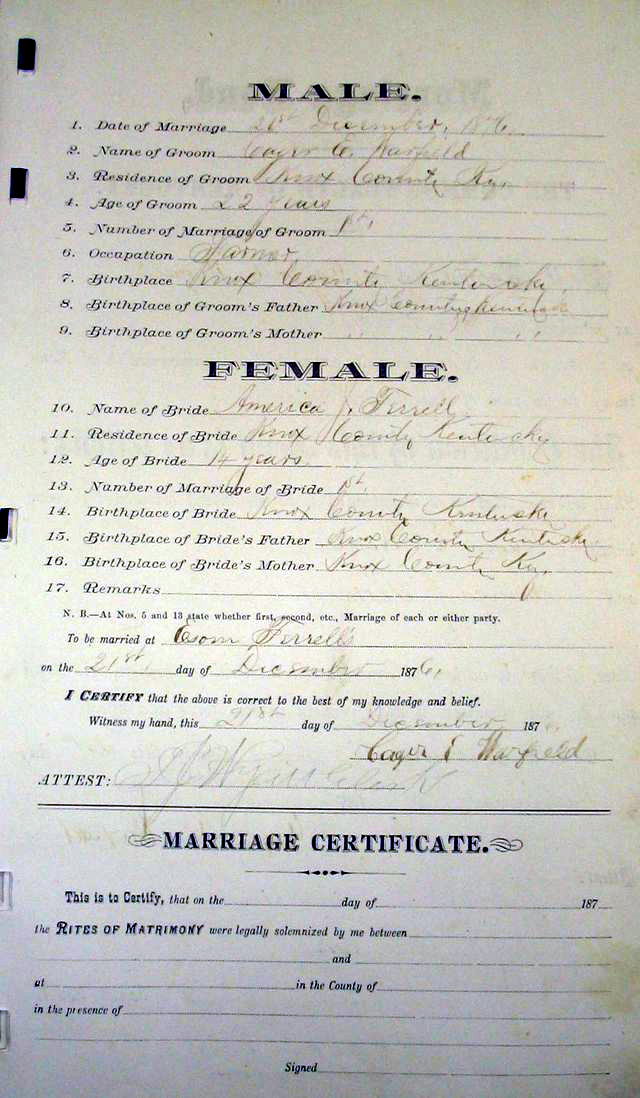 MALE.
1. Date of Marriage 21st December, 1876
2. Name of Groom Cager C. Warfield
3. Residence of Groom Knox County Ky.
4. Age of Groom 22 years
5. Number of Marriage of Groom 1st.
6. Occupation Farmer
7. Birthplace Knox County Kentucky
8. Birthplace of Groom's Father Knox County Kentucky
9. Birthplace of Groom's Mother " " "
FEMALE.
10. Name of Bride America J. Terrell
11. Residence of Bride Knox County Kentucky
12. Age of Bride 14 years
13. Number of Marriage of Bride 1st.
14. Birthplace of Bride Knox County Kentucky
15. Birthplace of Bride's Father Knox County Kentucky
16. Birthplace of Bride's Mother Knox County Ky.
17. Remarks
N. B.—At Nos. 5 and 13 state whether first, second, etc., Marriage of each or either party.
To be married at Esom Terrells
on the 21st. day of December 1876.
I CERTIFY that the above is correct to the best of my knowledge and belief.
Witness my hand, this 21st day of December 1876
Cager C Warfield
ATTEST: Clerk
MARRIAGE CERTIFICATE.
This is to Certify, that on the day of 187
the RITES OF MATRIMONY were legally solemnized by me between
and
at in the County of
in the presence of
Signed